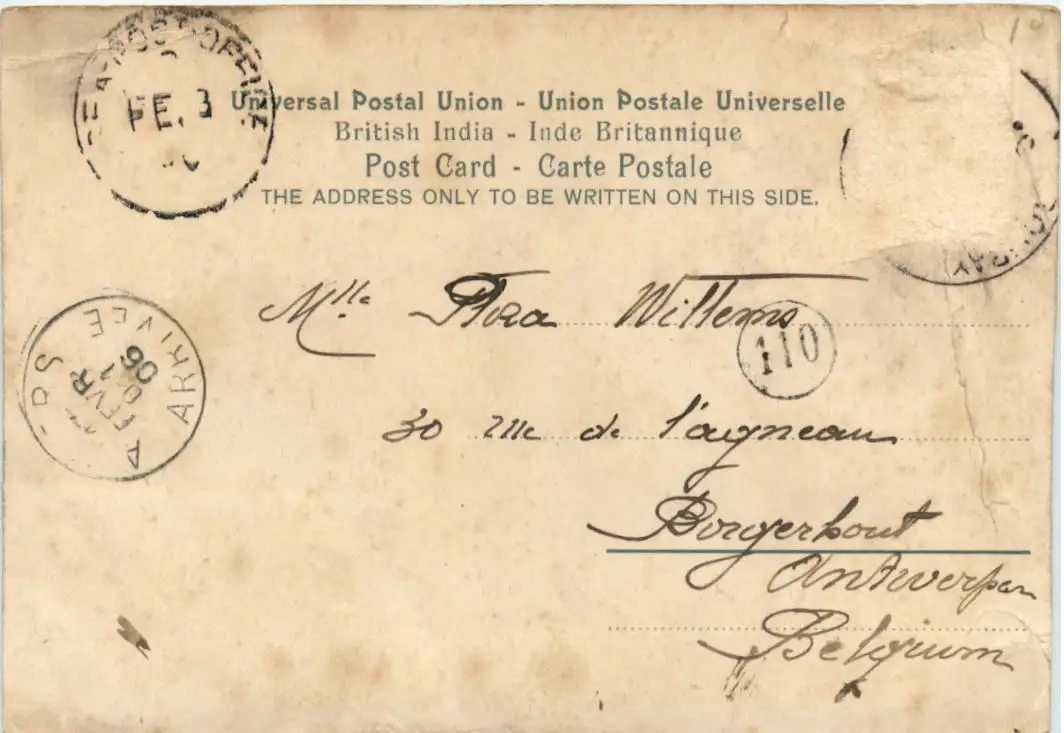 SEA POST OFFICE
FE. 3
Universal Postal Union - Union Postale Universelle
British India - Inde Britannique
Post Card - Carte Postale
THE ADDRESS ONLY TO BE WRITTEN ON THIS SIDE.
Mlle Flora Willems
110
30 rue de l'agneau
Borgerhout
Antwerpen
Belgium
ARRIVEE
FEVR
06